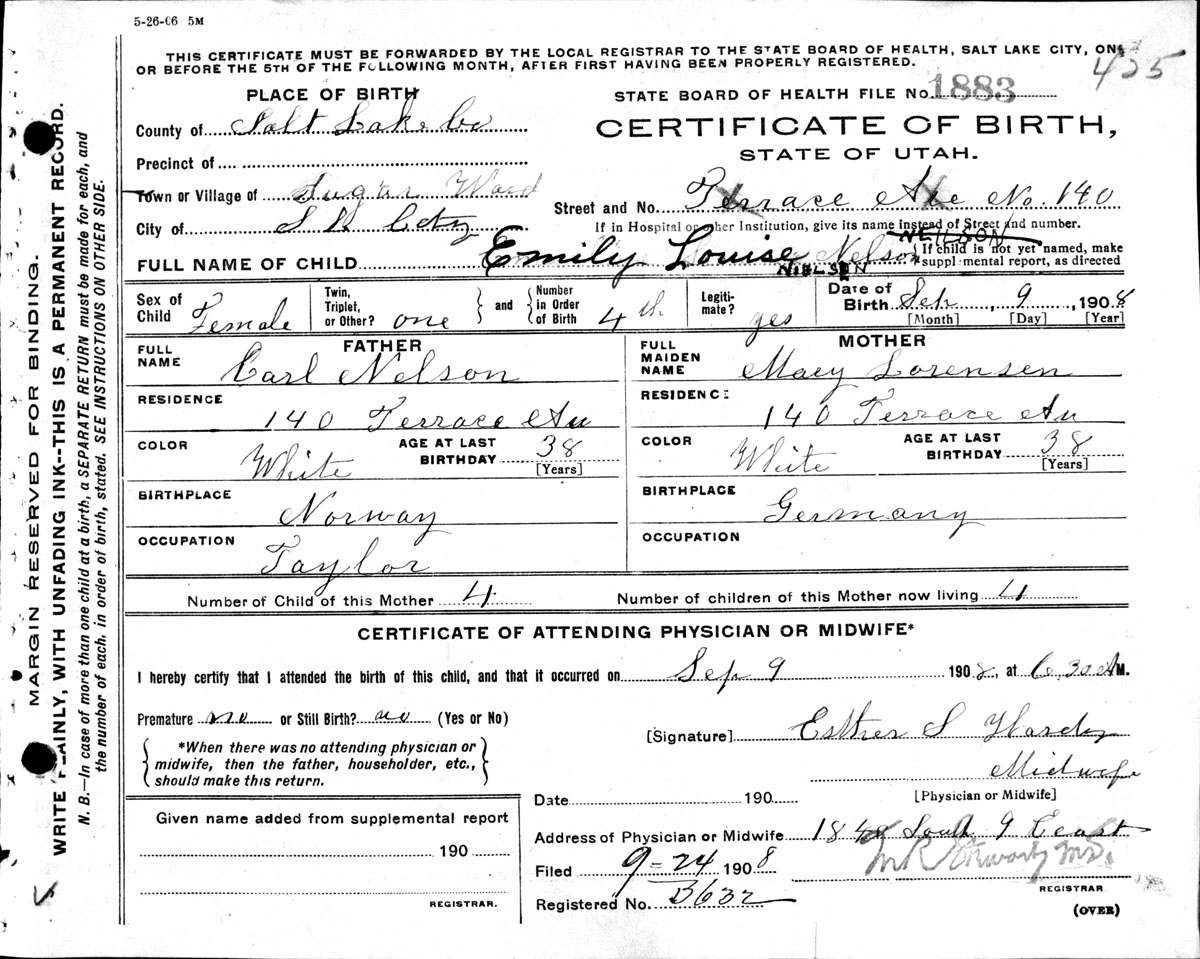 5-26-06 5M
THIS CERTIFICATE MUST BE FORWARDED BY THE LOCAL REGISTRAR TO THE STATE BOARD OF HEALTH, SALT LAKE CITY, ON
OR BEFORE THE 5TH OF THE FOLLOWING MONTH, AFTER FIRST HAVING BEEN PROPERLY REGISTERED.
425
PLACE OF BIRTH
STATE BOARD OF HEALTH FILE No. 1883
County of Salt Lake Co
CERTIFICATE OF BIRTH,
STATE OF UTAH.
Precinct of
Town or Village of Sugar Ward
Street and No. Terrace Ave No. 140
City of S L City
If in Hospital or other Institution, give its name instead of Street and number.
NEILSON
FULL NAME OF CHILD Emily Louise Nelson
NIELSEN
If child is not yet named, make
supplemental report, as directed
Sex of Child Female
Twin, Triplet, or Other? one
and
Number in Order of Birth 4th
Legitimate? yes
Date of Birth Sep 9, 1908
[Month] [Day] [Year]
FATHER
FULL NAME Carl Nelson
RESIDENCE 140 Terrace Av
COLOR White
AGE AT LAST BIRTHDAY 38
[Years]
BIRTHPLACE Norway
OCCUPATION Taylor
MOTHER
FULL MAIDEN NAME Mary Lorensen
RESIDENCE 140 Terrace Av
COLOR White
AGE AT LAST BIRTHDAY 38
[Years]
BIRTHPLACE Germany
OCCUPATION
Number of Child of this Mother 4
Number of children of this Mother now living 4
CERTIFICATE OF ATTENDING PHYSICIAN OR MIDWIFE*
I hereby certify that I attended the birth of this child, and that it occurred on Sep 9 1908, at 6.30 A M.
Premature no or Still Birth? no (Yes or No)
*When there was no attending physician or
midwife, then the father, householder, etc.,
should make this return.
[Signature] Esther S Hardy
Midwife
[Physician or Midwife]
Date 190
Given name added from supplemental report
190
REGISTRAR.
Address of Physician or Midwife South 9 East
Filed 9-24 1908
M.D.
REGISTRAR
Registered No. B632
(OVER)
MARGIN RESERVED FOR BINDING.
WRITE PLAINLY, WITH UNFADING INK--THIS IS A PERMANENT RECORD.
N. B.—In case of more than one child at a birth, a SEPARATE RETURN must be made for each, and
the number of each, in order of birth, stated. SEE INSTRUCTIONS ON OTHER SIDE.